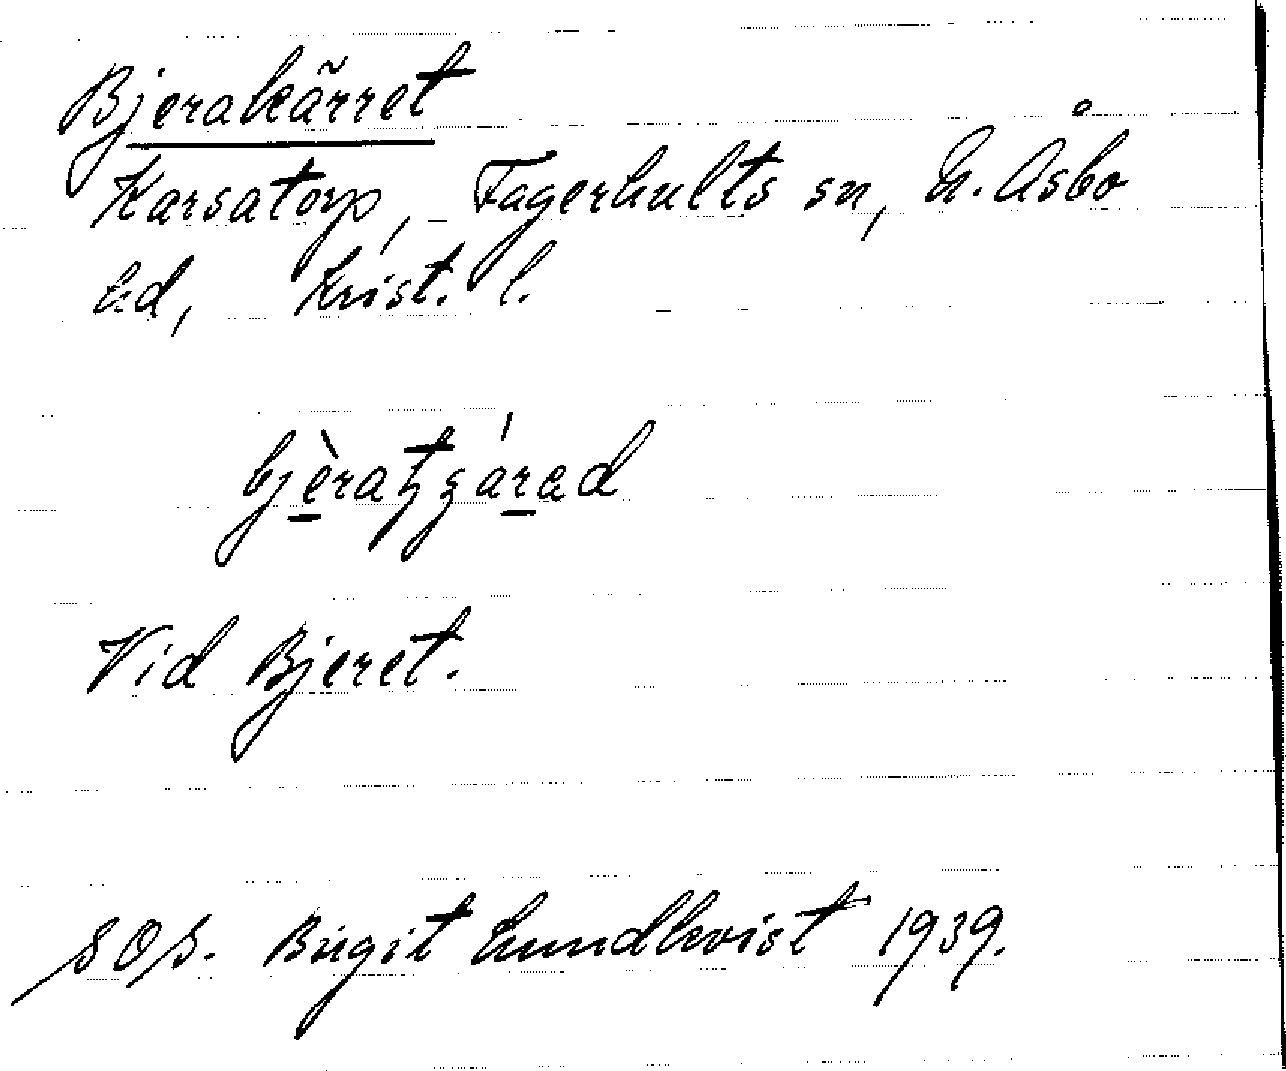 Bjerakärret
Karsatorp, Fagerhults sn, N. Åsbo
hd, Krist. l.
Vid Bjeret.
Birgit Lundkvist 1939.